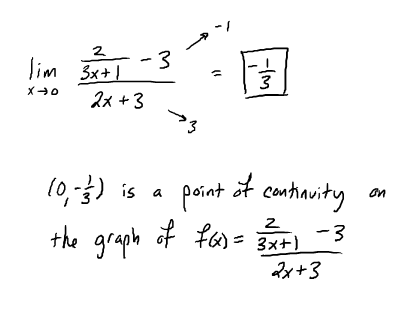 lim x→0 (2/(3x+1) - 3)/(2x+3) = -1/3
→ -1
→ 3
(0, -1/3) is a point of continuity on
the graph of f(x) = (2/(3x+1) - 3)/(2x+3)